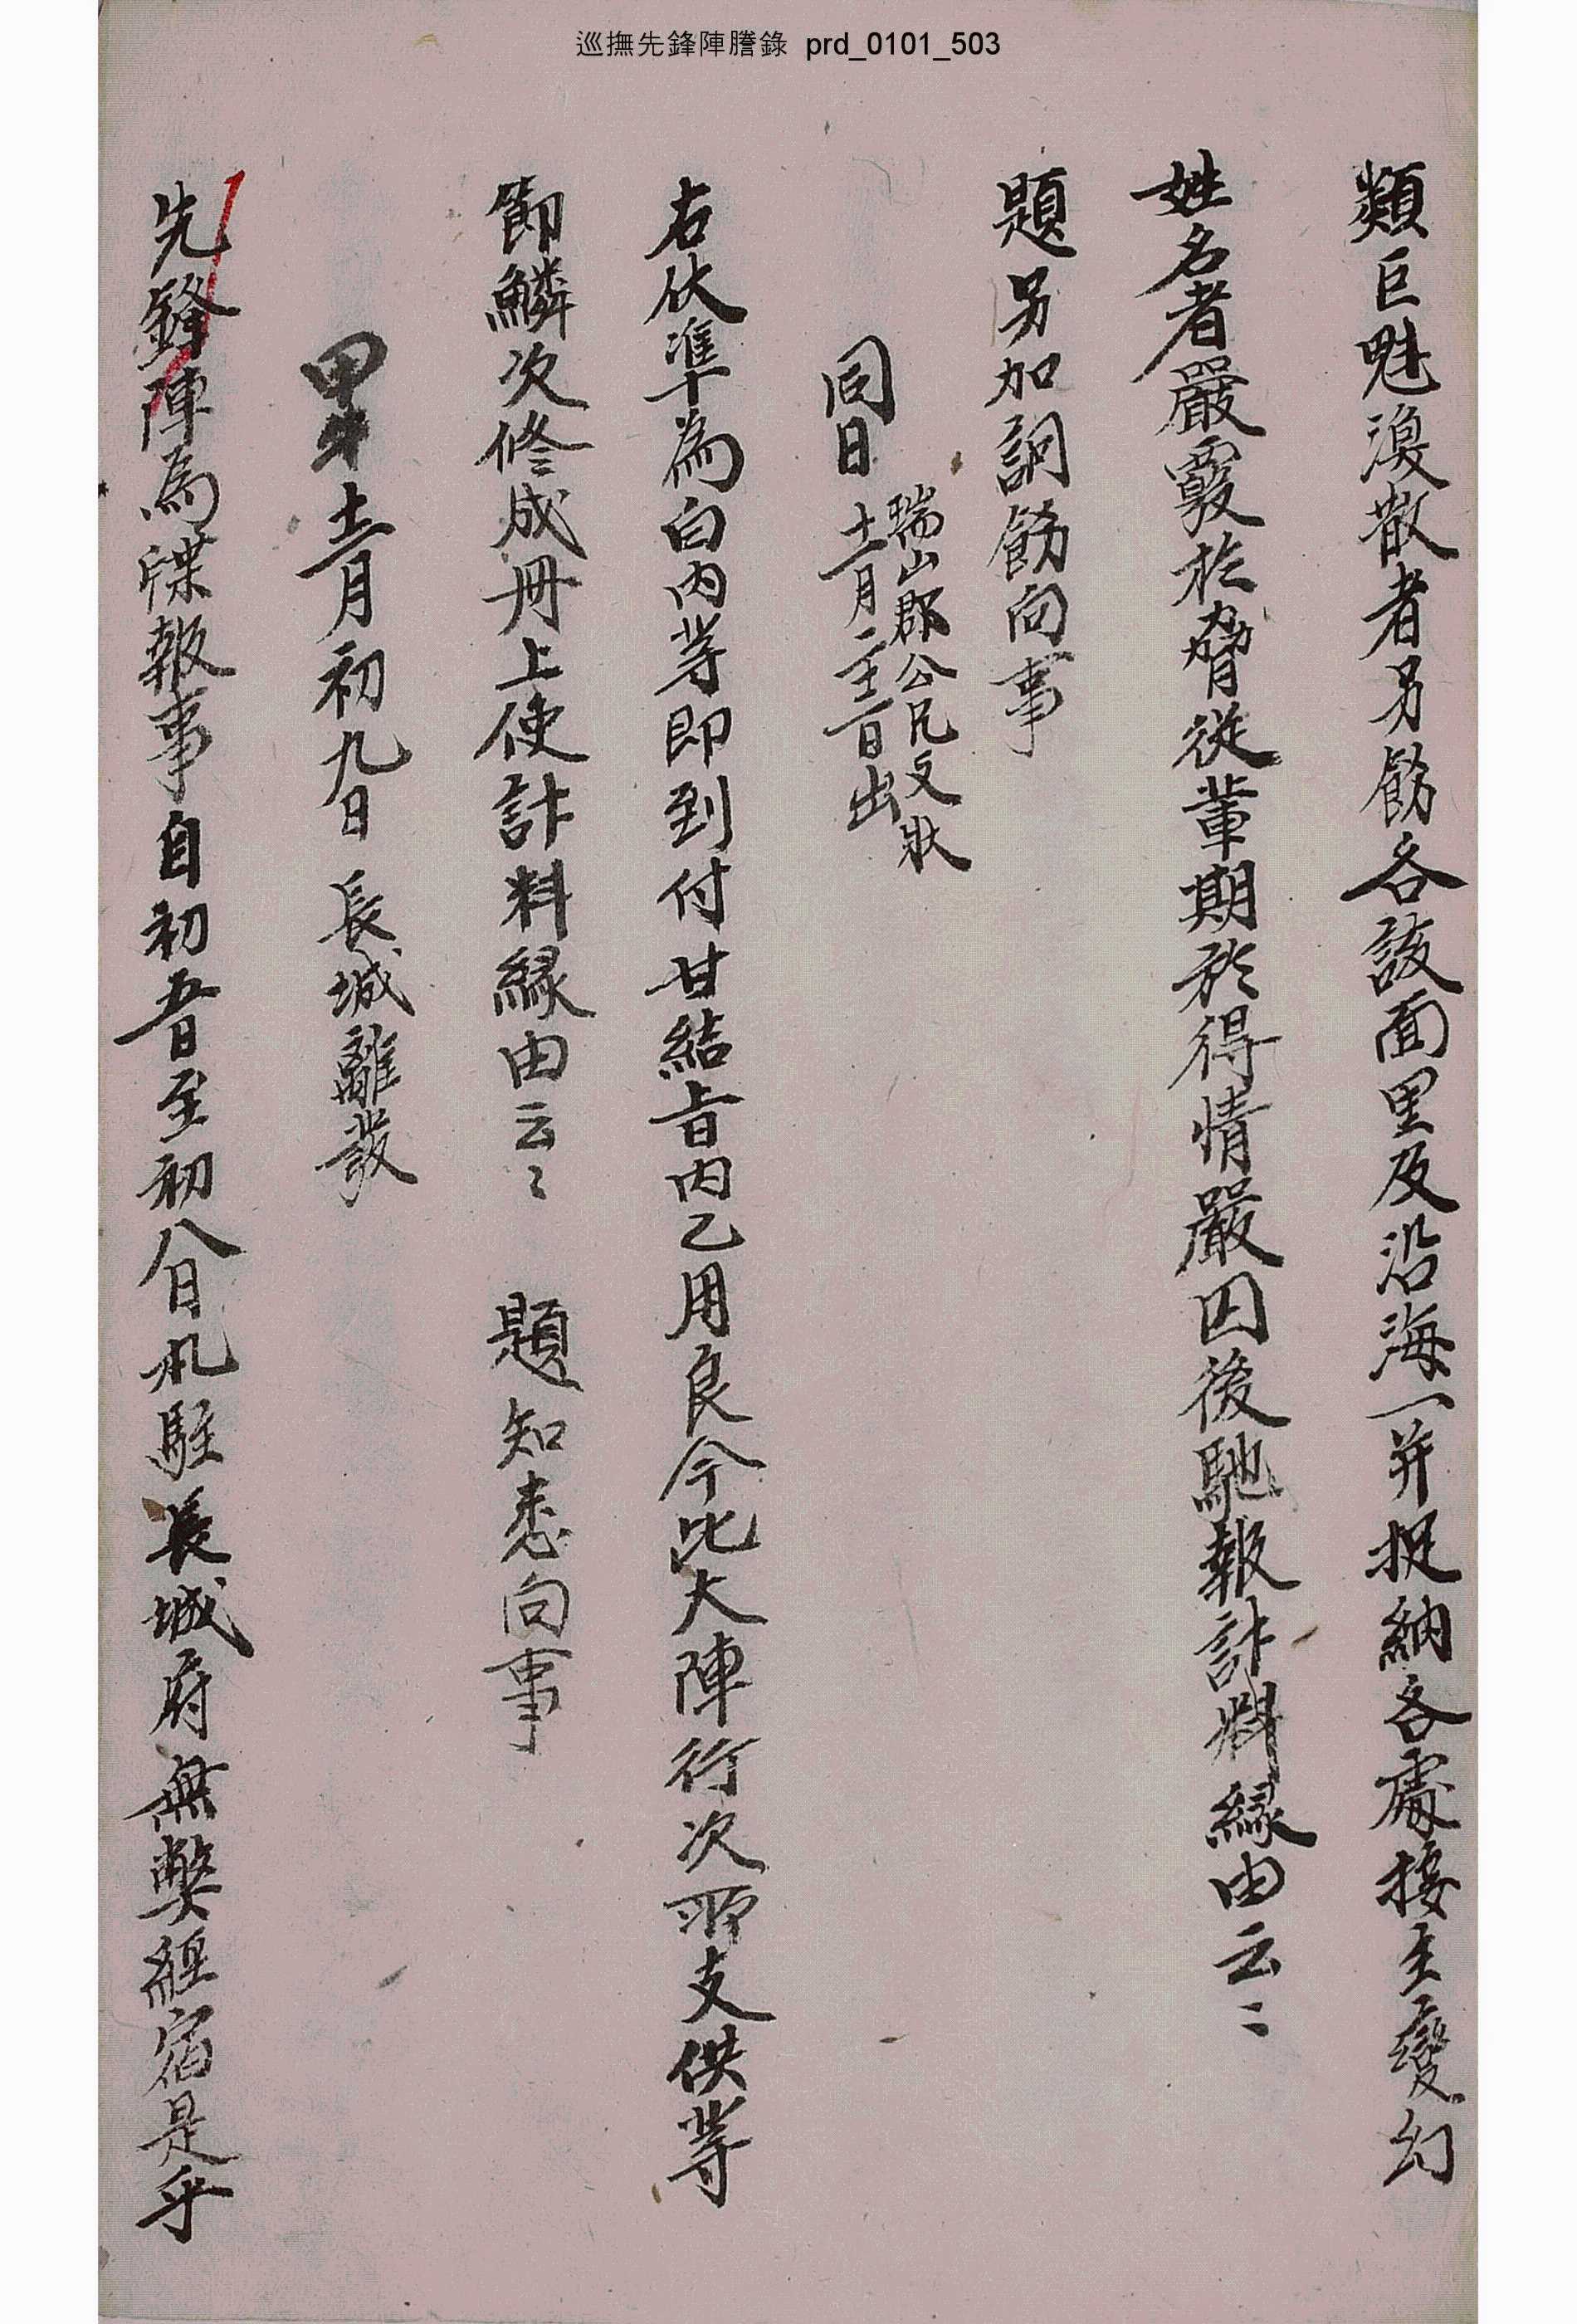 巡撫先鋒陣謄錄 prd_0101_503
類巨魁渙散者另飭各該面里及沿海一并捉納各處接主變幻
姓名者嚴覈於脅從輩期於得情嚴囚後馳報計料緣由云〻
題另加詗飭向事
同日
瑞山郡公兄文狀
十一月二十五日出
右伏準為白內等即到付甘結旨內乙用良今此大陣行次所支供等
節鱗次修成冊上使計料緣由云〻 題知悉向事
甲午十二月初九日長城離發
先鋒陣為牒報事自初五日至初八日札駐長城府無弊經宿是乎